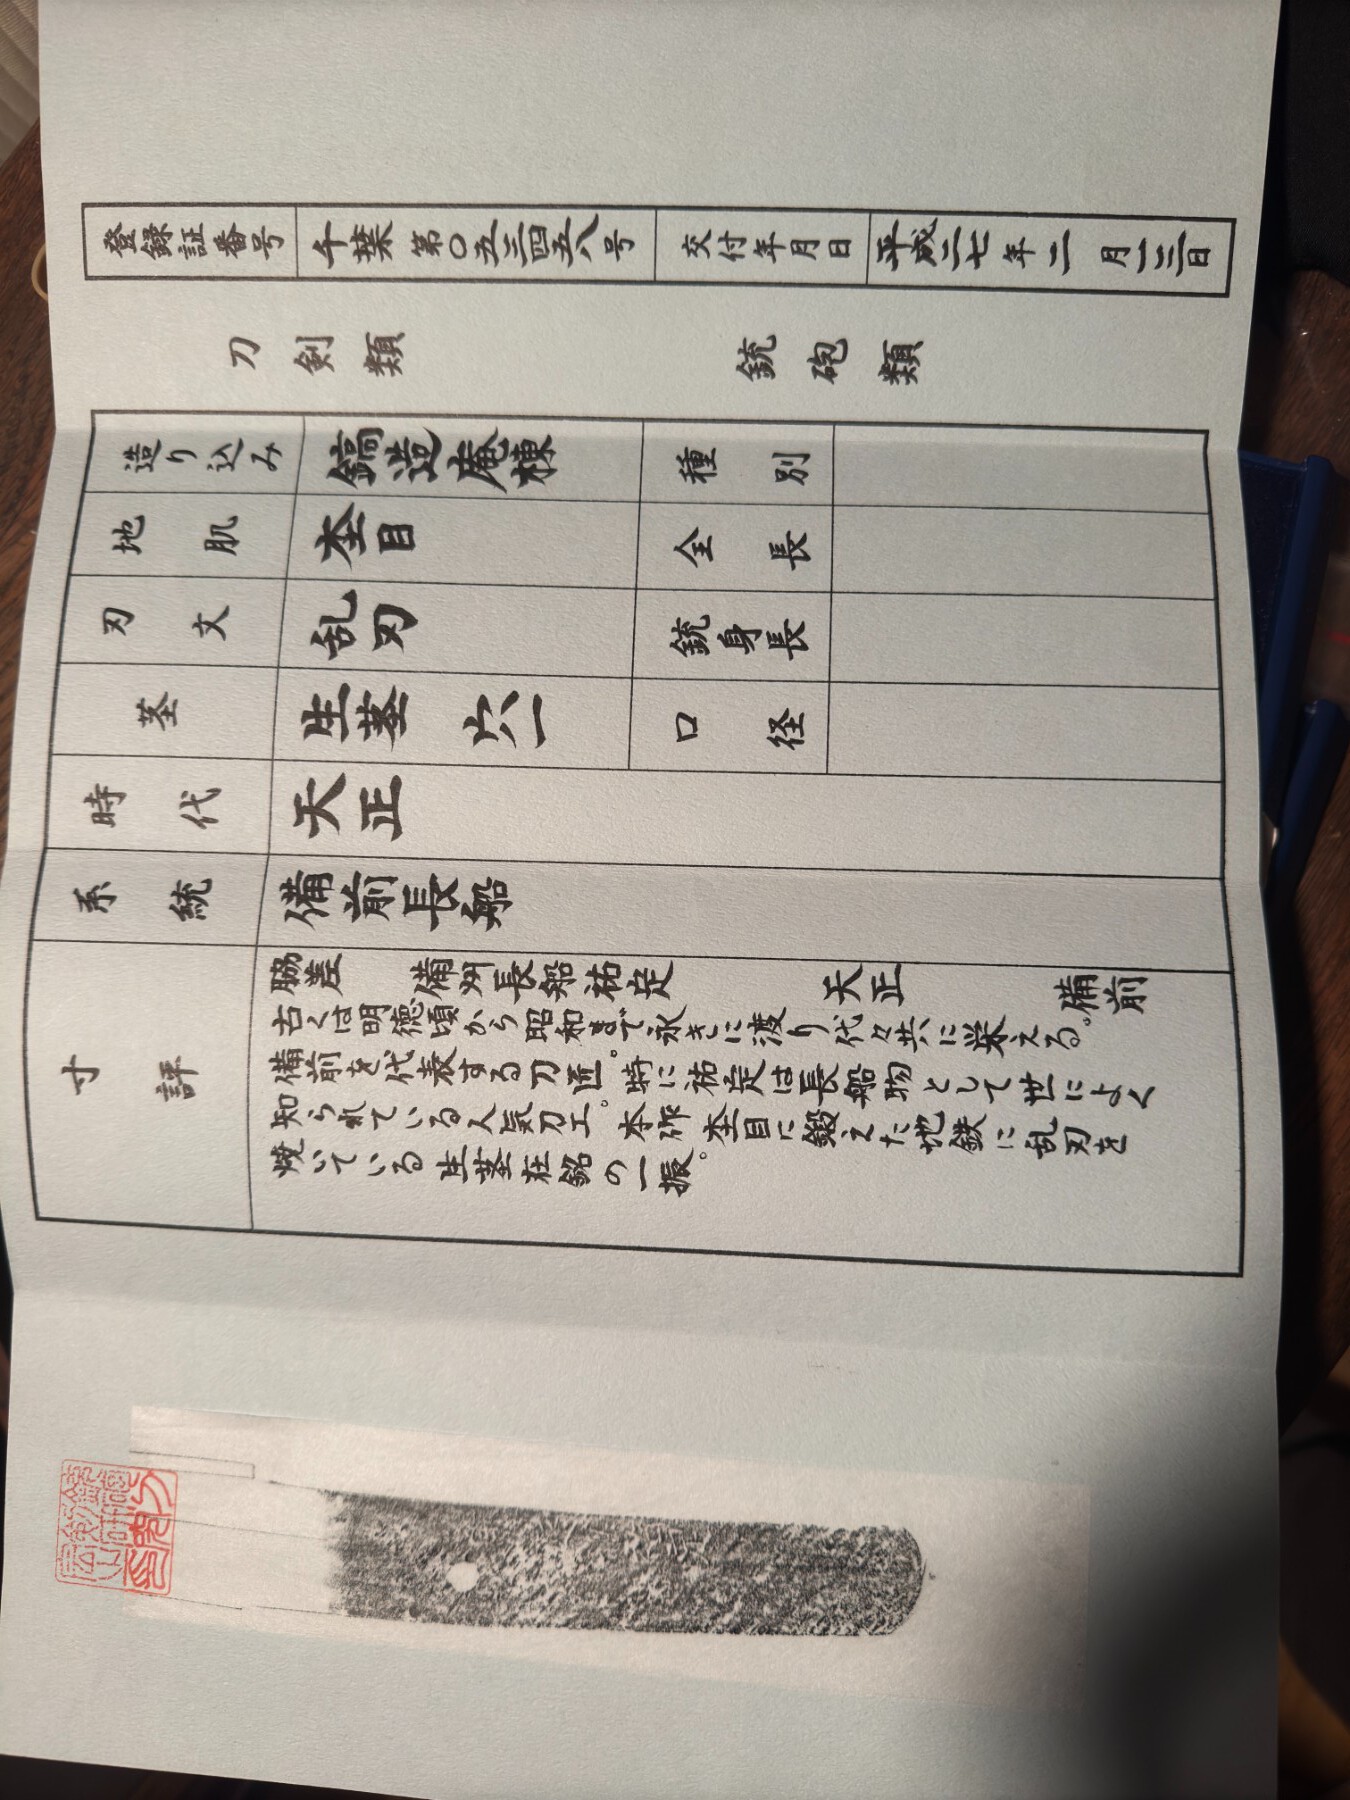 登録証番号 千葉 第〇五三四五八号 交付年月日 平成二七年二月一三日
刀剣類 銃砲類
造り込み 鎬造庵棟 種別
地肌 杢目 全長
刃文 乱刃 銃身長
茎 生茎 穴一 口径
時代 天正
系統 備前長船
寸評 脇差 備州長船祐定 天正 備前
古くは明徳頃から昭和まで永きに渡り代々共に栄える。
備前を代表する刀匠。特に祐定は長船物として世によく
知られている人気刀工。本作杢目に鍛えた地鉄に乱刃を
焼いている生茎在銘の一振。